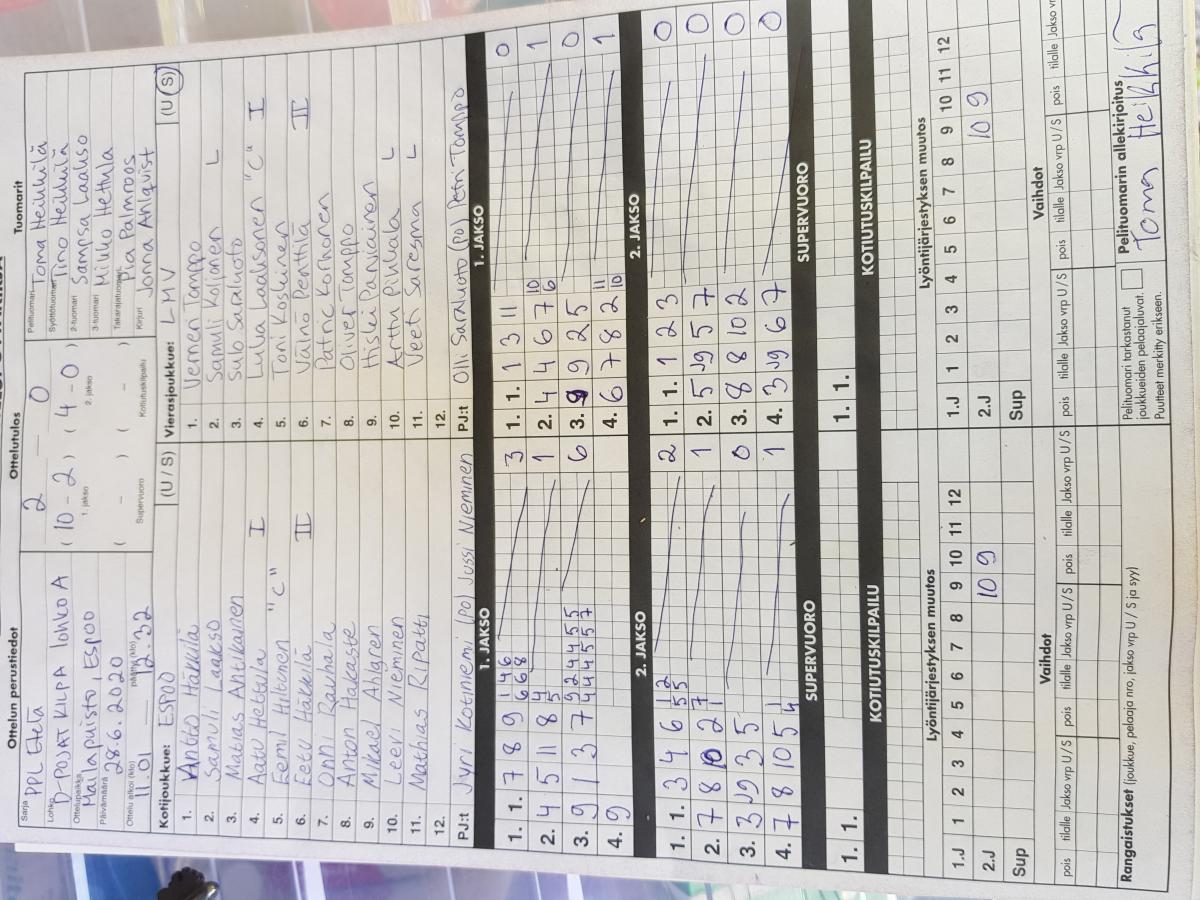 Ottelun perustiedot
Sarja PPL Etelä
Lohko D-POJAT KILPA lohko A
Ottelupaikka Mailapuisto, Espoo
Päivämäärä 28.6.2020
Ottelu alkoi (klo) 11.01 päättyi (klo) 12.32
Ottelutulos
2 — 0
( 10 - 2 ) ( 4 - 0 )
1. jakso 2. jakso
( - ) ( - )
Supervuoro Kotiutuskilpailu
Tuomarit
Pelituomari Toma Heikkilä
Syöttötuomari Tino Heikkilä
2-tuomari Sampsa Laakso
3-tuomari Mikko Hettula
Takarajatuomari Pia Palmroos
Kirjuri Jonna Ahlqvist
Kotijoukkue: ESPOO (U / S)
1. Antto Häkkilä
2. Samuli Laakso
3. Matias Antikainen
4. Aatu Hettula I
5. Eemil Hiltunen "C"
6. Eetu Häkkilä II
7. Onni Rauhala
8. Anton Hakaste
9. Mikael Ahlgren
10. Leevi Nieminen
11. Mathias Ripatti
12.
PJ:t Jyri Kotiniemi (PO) Jussi Nieminen
Vierasjoukkue: LMV (U / S)
1. Verneri Tomppo
2. Samuli Koljonen L
3. Sulo Saraluoto
4. Luka Laaksonen "C" I
5. Toni Koskinen
6. Väinö Penttilä II
7. Patric Korhonen
8. Oliver Tomppo
9. Hislei Parviainen
10. Arttu Pihlvala L
11. Veeti Saresma L
12.
PJ:t Olli Saraluoto (PO) Petri Tomppo
1. JAKSO 1. JAKSO
1. 1. 7 8 9 1 4 6 6 6 8 3
2. 4 5 11 8 4 5 1
3. 9 1 3 7 9 2 4 4 5 5 4 4 4 5 5 7 6
4. 9
1. 1. 1 3 11 0
2. 4 4 6 7 10 6 1
3. 9 9 2 5 0
4. 6 7 8 2 11 10 1
2. JAKSO 2. JAKSO
1. 1. 3 4 6 1 2 5 5 2
2. 7 8 10 2 7 1 1
3. 3 J9 3 5 0
4. 7 8 10 5 1 4 1
1. 1. 1 2 3 0
2. 5 J9 5 7 0
3. 8 8 10 2 0
4. 3 J9 6 7 0
SUPERVUORO SUPERVUORO
1. 1.
1. 1.
KOTIUTUSKILPAILU KOTIUTUSKILPAILU
Lyöntijärjestyksen muutos
1.J 1 2 3 4 5 6 7 8 9 10 11 12
2.J 10 9
Sup
Lyöntijärjestyksen muutos
1.J 1 2 3 4 5 6 7 8 9 10 11 12
2.J 10 9
Sup
Vaihdot Vaihdot
pois tilalle Jakso vrp U / S pois tilalle Jakso vrp U / S pois tilalle Jakso vrp U / S pois tilalle Jakso vrp U / S pois tilalle Jakso vrp U / S pois tilalle Jakso vr
Rangaistukset (joukkue, pelaaja nro, jakso vrp U / S ja syy)
Pelituomari tarkastanut
joukkueiden pelaajaluvat.
Puutteet merkitty erikseen.
Pelituomarin allekirjoitus
Toma Heikkilä